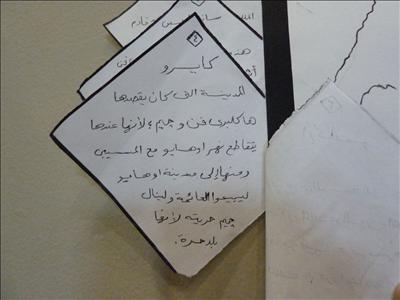 ٤
كايرو
المدينة التي كان يقصدها
هاكلبري فن و جيم ، لأنها عندها
يتقاطع نهر اوهايو مع المسيسبي
ومنها إلى مدينة اوهايو
ليبيعوا العائمة ولينال
جيم حريته لأنها
بلد حرة.